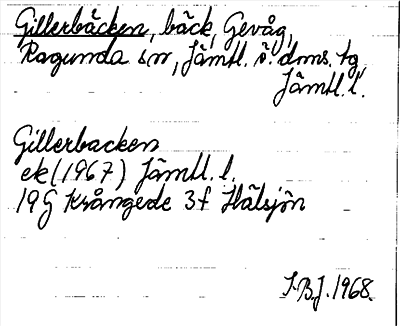 Gillerbäcken, bäck, Gevåg,
Ragunda sn, Jämtl. ö. dms. tg
Jämtl. l.
Gillerbacken
ek (1967) Jämtl. l.
19G Krångede 3f Hälsjön
S.B.J. 1968.